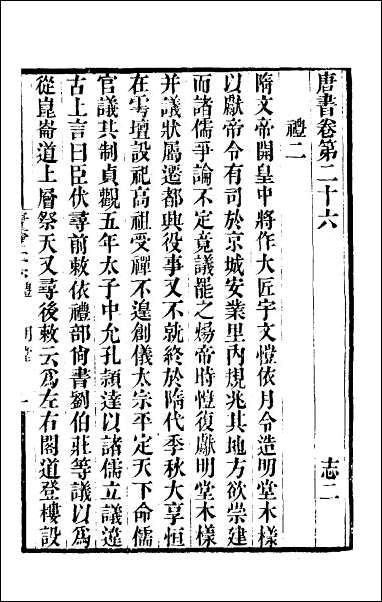 唐書卷第二十六　志二
禮二
隋文帝開皇中將作大匠宇文愷依月令造明堂木樣
以獻帝令有司於京城安業里內規兆其地方欲崇建
而諸儒爭論不定竟議罷之煬帝時愷復獻明堂木樣
并議狀屬遷都興役事又不就終於隋代季秋大享恒
在雩壇設祀高祖受禪不遑創儀太宗平定天下命儒
官議其制貞觀五年太子中允孔穎達以諸儒立議違
古上言曰臣伏尋前敕依禮部尙書劉伯莊等議以爲
從崑崙道上層祭天又尋後敕云爲左右閣道登樓設